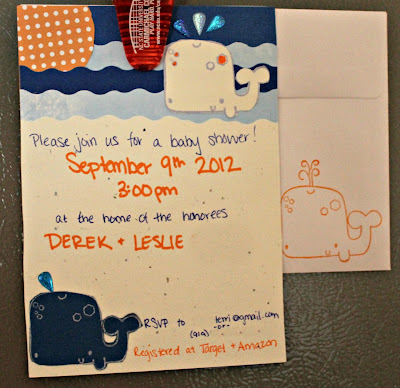 Please join us for a baby shower!
September 9th 2012
3:00pm
at the home of the honorees
DEREK + LESLIE
RSVP to terri@gmail.com
-or-
(919)
Registered at Target + Amazon